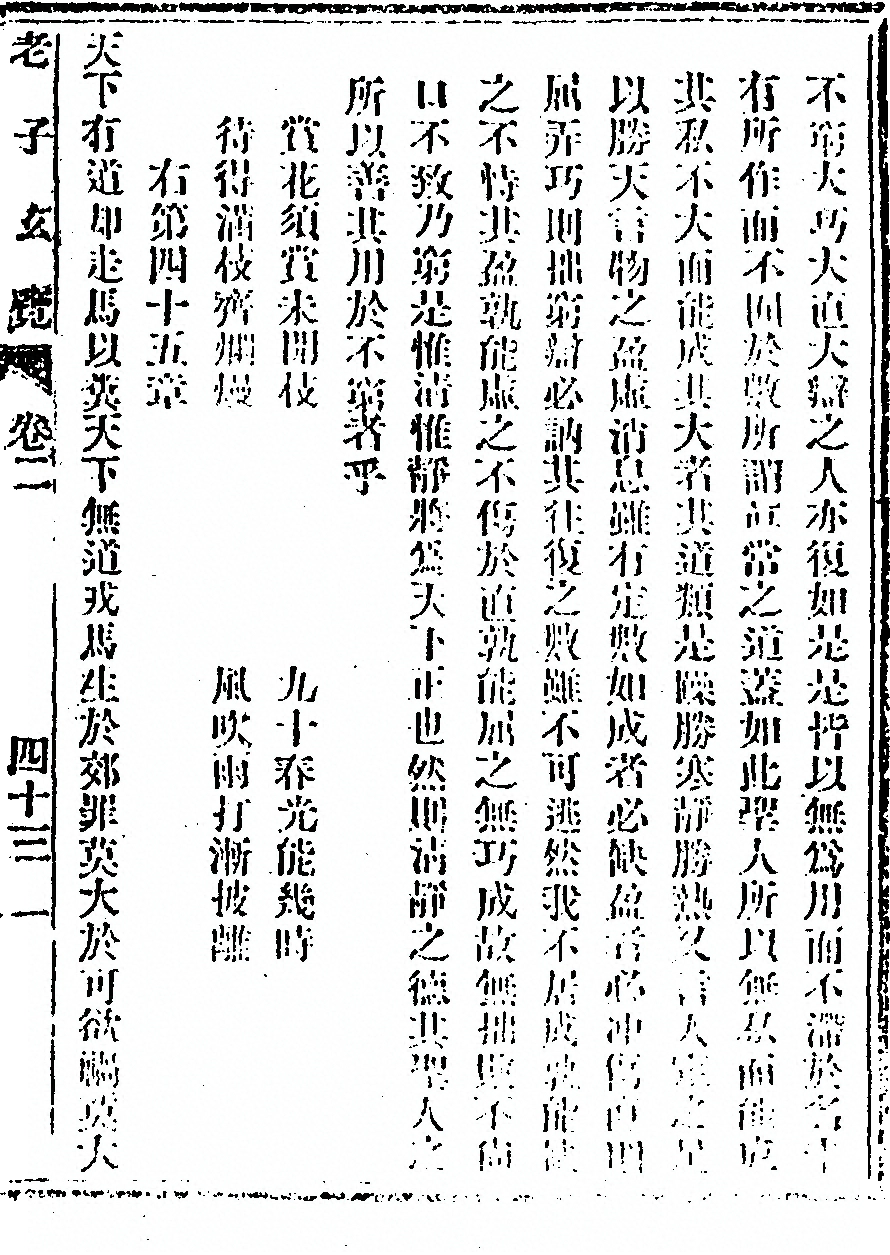 不窮大巧大直大辯之人亦復如是是皆以無爲用而不滯於名
有所作而不囿於數所謂眞常之道蓋如此聖人所以無私而能成
其私不大而能成其大者其道類是躁勝寒靜勝熱又言人定之足
以勝天言物之盈虛消息雖有定數如成者必缺盈者必沖傷直則
屈弄巧則拙窮辯必訥其往復之數雖不可逃然我不居成孰能缺
之不恃其盈孰能虛之不傷於直孰能屈之無巧成故無拙敗不尚
口不致乃窮是惟淸惟靜將爲天下正也然則淸靜之德其聖人之
所以善其用於不窮者乎
賞花須賞未開枝 九十春光能幾時
待得滿枝齊爛熳 風吹雨打漸披離
右第四十五章
天下有道却走馬以糞天下無道戎馬生於郊罪莫大於可欲禍莫大
老子玄覽 卷二 四十三